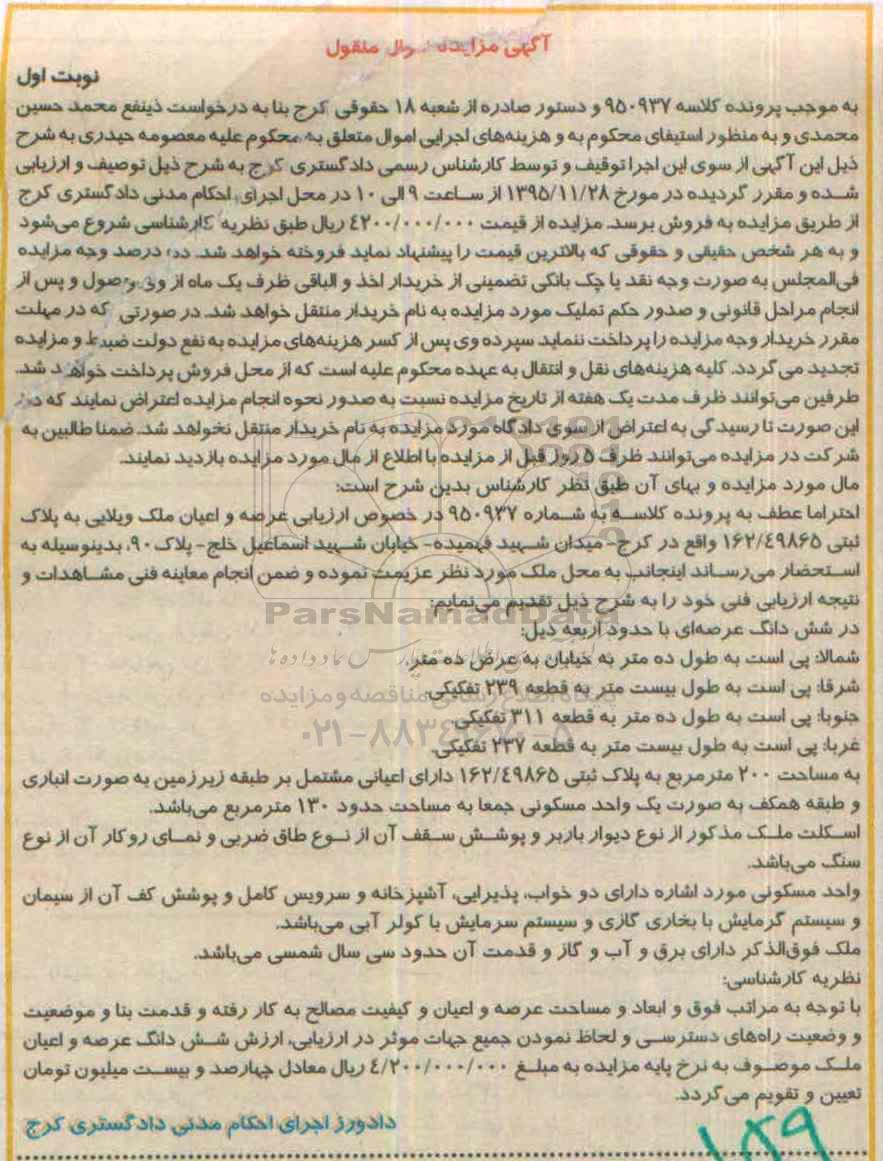 آگهی مزایده اموال منقول
نوبت اول
به موجب پرونده کلاسه ۹۵۰۹۳۷ و دستور صادره از شعبه ۱۸ حقوقی کرج بنا به درخواست ذینفع محمد حسین
محمدی و به منظور استیفای محکوم به و هزینه‌های اجرایی اموال متعلق به محکوم علیه معصومه حیدری به شرح
ذیل این آگهی از سوی این اجرا توقیف و توسط کارشناس رسمی دادگستری کرج به شرح ذیل توصیف و ارزیابی
شده و مقرر گردیده در مورخ ۱۳۹۵/۱۱/۲۸ از ساعت ۹ الی ۱۰ در محل اجرای احکام مدنی دادگستری کرج
از طریق مزایده به فروش برسد. مزایده از قیمت ۴۲۰۰/۰۰۰/۰۰۰ ریال طبق نظریه کارشناسی شروع می‌شود
و به هر شخص حقیقی و حقوقی که بالاترین قیمت را پیشنهاد نماید فروخته خواهد شد. ده درصد وجه مزایده
فی‌المجلس به صورت وجه نقد یا چک بانکی تضمینی از خریدار اخذ و الباقی ظرف یک ماه از وی وصول و پس از
انجام مراحل قانونی و صدور حکم تملیک مورد مزایده به نام خریدار منتقل خواهد شد. در صورتی که در مهلت
مقرر خریدار وجه مزایده را پرداخت ننماید سپرده وی پس از کسر هزینه‌های مزایده به نفع دولت ضبط و مزایده
تجدید می گردد. کلیه هزینه‌های نقل و انتقال به عهده محکوم علیه است که از محل فروش پرداخت خواهد شد.
طرفین می‌توانند ظرف مدت یک هفته از تاریخ مزایده نسبت به صدور نحوه انجام مزایده اعتراض نمایند که در
این صورت تا رسیدگی به اعتراض از سوی دادگاه مورد مزایده به نام خریدار منتقل نخواهد شد. ضمنا طالبین به
شرکت در مزایده می‌توانند ظرف ۵ روز قبل از مزایده با اطلاع از مال مورد مزایده بازدید نمایند.
مال مورد مزایده و بهای آن طبق نظر کارشناس بدین شرح است:
احتراما عطف به پرونده کلاسه به شماره ۹۵۰۹۳۷ در خصوص ارزیابی عرصه و اعیان ملک ویلایی به پلاک
ثبتی ۱۶۲/۴۹۸۶۵ واقع در کرج- میدان شهید فهمیده- خیابان شهید اسماعیل خلج- پلاک۹۰، بدینوسیله به
استحضار می‌رساند اینجانب به محل ملک مورد نظر عزیمت نموده و ضمن انجام معاینه فنی مشاهدات و
نتیجه ارزیابی فنی خود را به شرح ذیل تقدیم می‌نمایم:
ParsNamadData
در شش دانگ عرصه‌ای با حدود اربعه ذیل:
شمالا: پی است به طول ده متر به خیابان به عرض ده متر.
شرقا: پی است به طول بیست متر به قطعه ۲۳۹ تفکیکی.
پایگاه اطلاع رسانی مناقصه و مزایده
جنوبا: پی است به طول ده متر به قطعه ۳۱۱ تفکیکی.
غربا: پی است به طول بیست متر به قطعه ۲۳۷ تفکیکی.
به مساحت ۲۰۰ مترمربع به پلاک ثبتی ۱۶۲/۴۹۸۶۵ دارای اعیانی مشتمل بر طبقه زیرزمین به صورت انباری
و طبقه همکف به صورت یک واحد مسکونی جمعا به مساحت حدود ۱۳۰ مترمربع می‌باشد.
اسکلت ملک مذکور از نوع دیوار باربر و پوشش سقف آن از نوع طاق ضربی و نمای روکار آن از نوع
سنگ می‌باشد.
واحد مسکونی مورد اشاره دارای دو خواب، پذیرایی، آشپزخانه و سرویس کامل و پوشش کف آن از سیمان
و سیستم گرمایش با بخاری گازی و سیستم سرمایش با کولر آبی می‌باشد.
ملک فوق‌الذکر دارای برق و آب و گاز و قدمت آن حدود سی سال شمسی می‌باشد.
نظریه کارشناسی:
با توجه به مراتب فوق و ابعاد و مساحت عرصه و اعیان و کیفیت مصالح به کار رفته و قدمت بنا و موضعیت
و وضعیت راه‌های دسترسی و لحاظ نمودن جمیع جهات موثر در ارزیابی، ارزش شش دانگ عرصه و اعیان
ملک موصوف به نرخ پایه مزایده به مبلغ ۴/۲۰۰/۰۰۰/۰۰۰ ریال معادل چهارصد و بیست میلیون تومان
تعیین و تقویم می گردد.
دادورز اجرای احکام مدنی دادگستری کرج